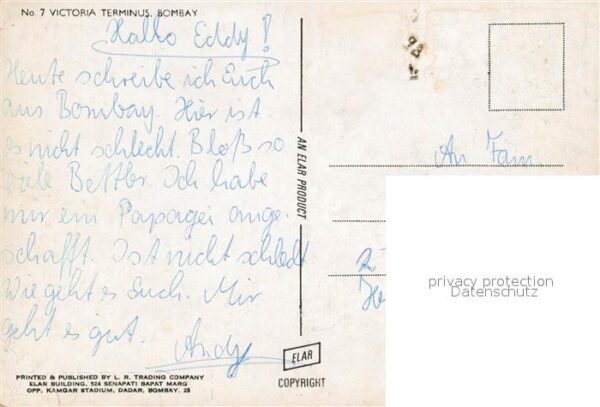 No. 7 VICTORIA TERMINUS, BOMBAY
Hallo Eddy!
Heute schreibe ich Euch
aus Bombay. Hier ist
es nicht schlecht. Bloß so
viele Bettler. Ich habe
mir ein Papagei ange-
schafft. Ist nicht schlecht
Wie geht es Euch. Mir
geht es gut.
Andy
PRINTED & PUBLISHED BY L. R. TRADING COMPANY
ELAR BUILDING, 524 SENAPATI BAPAT MARG
OPP. KAMGAR STADIUM, DADAR, BOMBAY. 28
AN ELAR PRODUCT
ELAR
COPYRIGHT
An Fam
privacy protection
Datenschutz